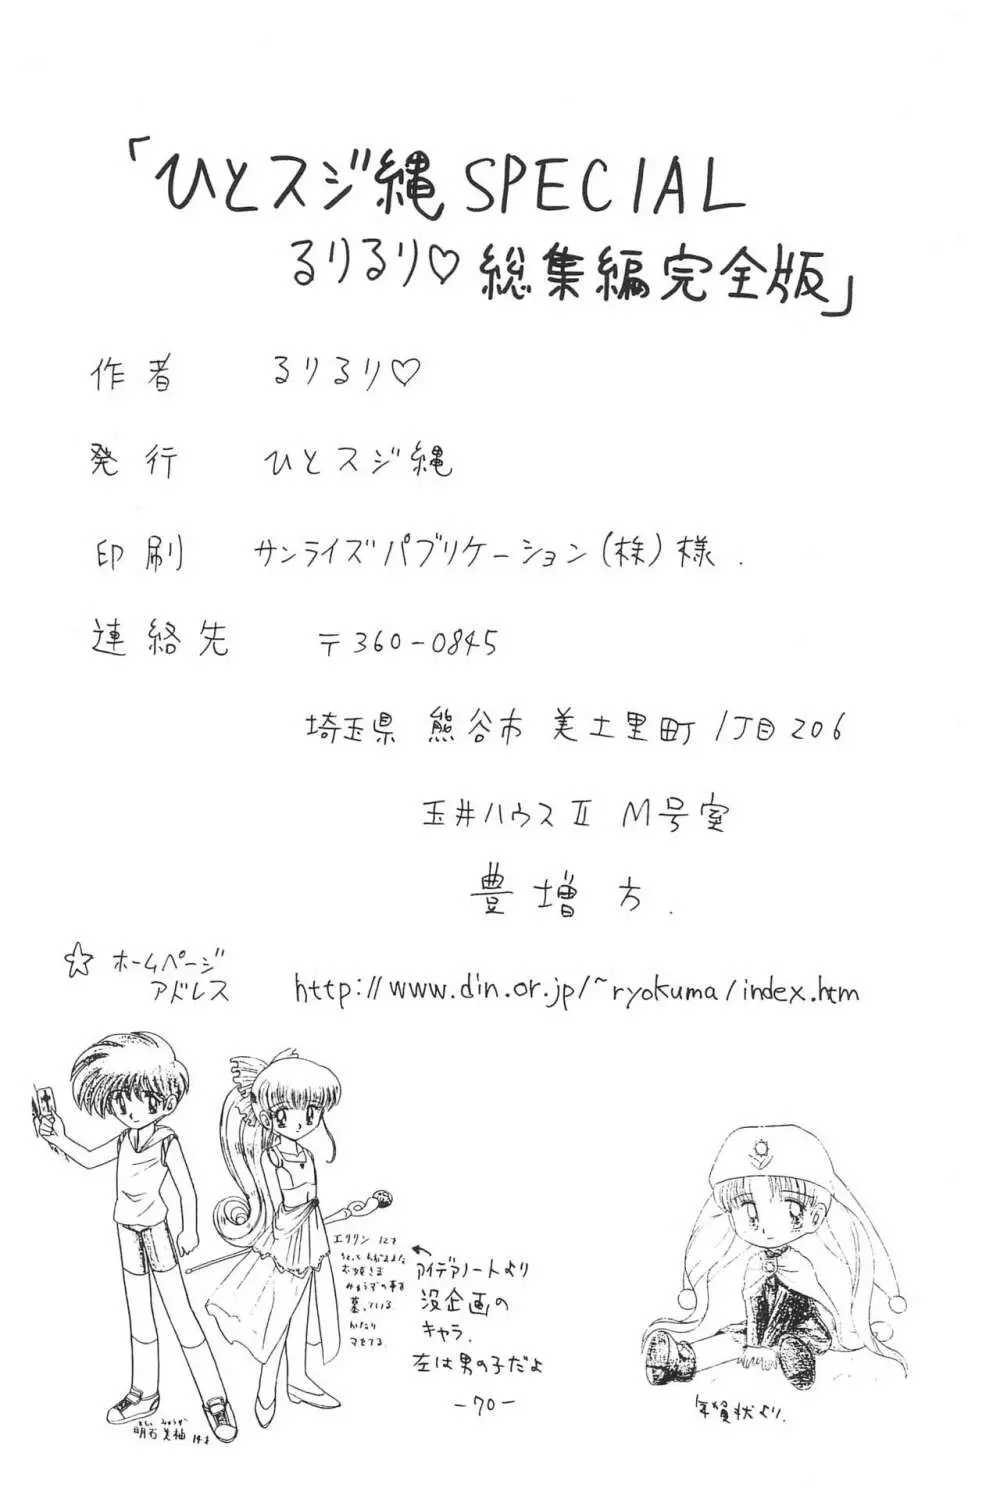 「ひとスジ縄 SPECIAL
るりるり♡ 総集編完全版」
作者 るりるり♡
発行 ひとスジ縄
印刷 サンライズパブリケーション(株)様.
連絡先 〒360-0845
埼玉県 熊谷市 美土里町 1丁目206
玉井ハウスⅡ M号室
豊増 方.
☆ ホームページ
アドレス http://www.din.or.jp/~ryokuma/index.htm
エリリン 12才
ちょっとわがままな
お姫さま
慕っている
かなり
マセてる
←アイデアノートより
没企画の
キャラ.
左は男の子だよ
明石 14才
年賀状より.
-70-